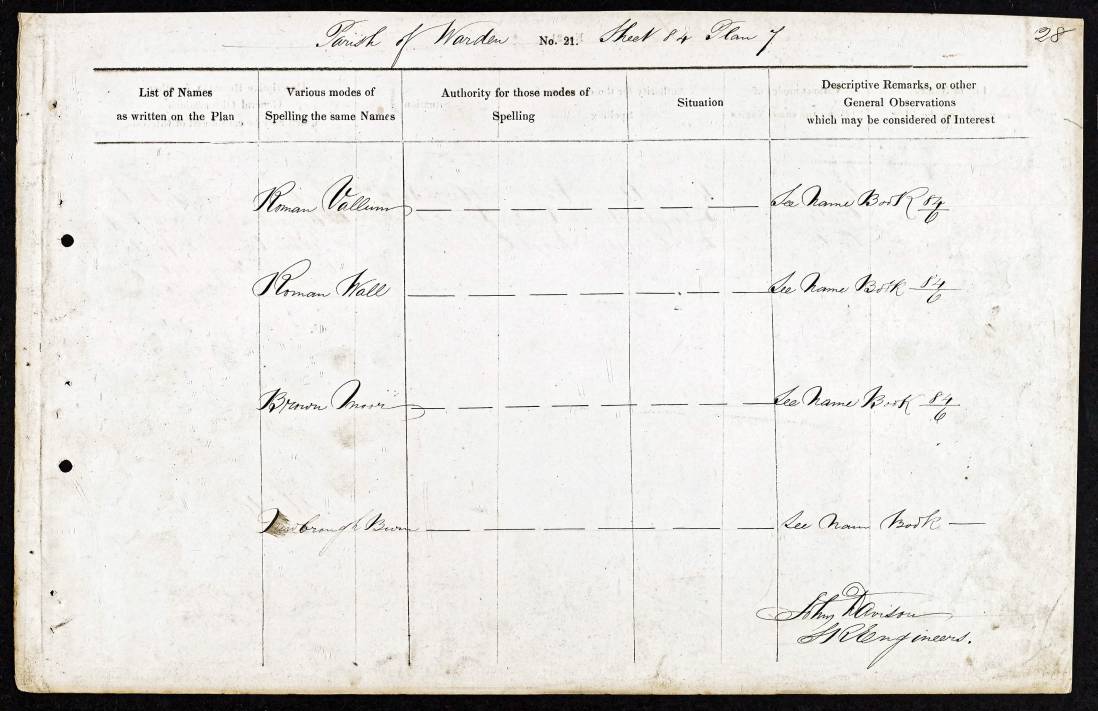 Parish of Warden No. 21. Sheet 84 Plan 7 28
List of Names
as written on the Plan
Various modes of
Spelling the same Names
Authority for those modes of
Spelling
Situation
Descriptive Remarks, or other
General Observations
which may be considered of Interest
Roman Vallum — — — — — — See Name Book 84/6
Roman Wall — — — — — — See Name Book 84/6
Brown Moor — — — — — — See Name Book 84/6
Newbrough Burn — — — — — — See Name Book —
John Davison
Engineers.